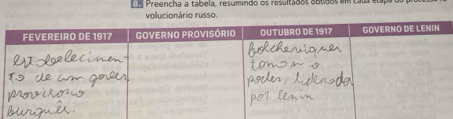 8. Preencha a tabela, resumindo os resultados obtidos em cada etapa do processo re-
volucionário russo.
FEVEREIRO DE 1917 GOVERNO PROVISÓRIO OUTUBRO DE 1917 GOVERNO DE LENIN
estabelecimen-
to de um governo
provisório
burguês.
bolcheviques
tomam o
poder, liderados
por Lenin